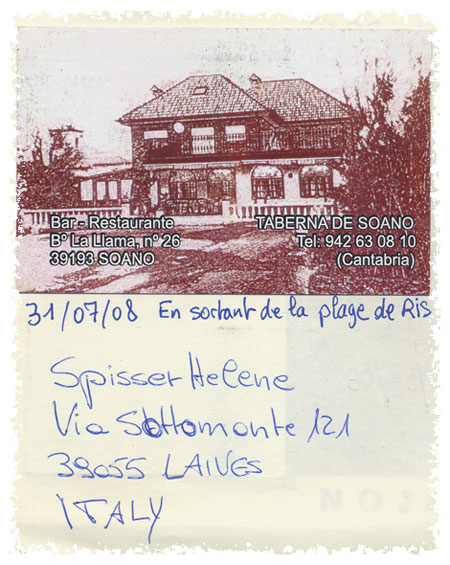 Bar - Restaurante
Bº La Llama, nº 26
39193 SOANO
TABERNA DE SOANO
Tel: 942 63 08 10
(Cantabria)
31/07/08 En sortant de la plage de Ris
Spisser Helene
Via Sottomonte 121
39055 LAIVES
ITALY